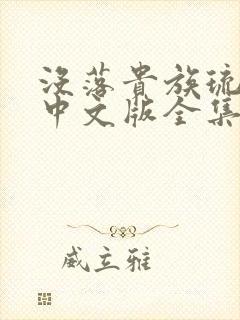 没落貴族琉
中文版全集
威立雅